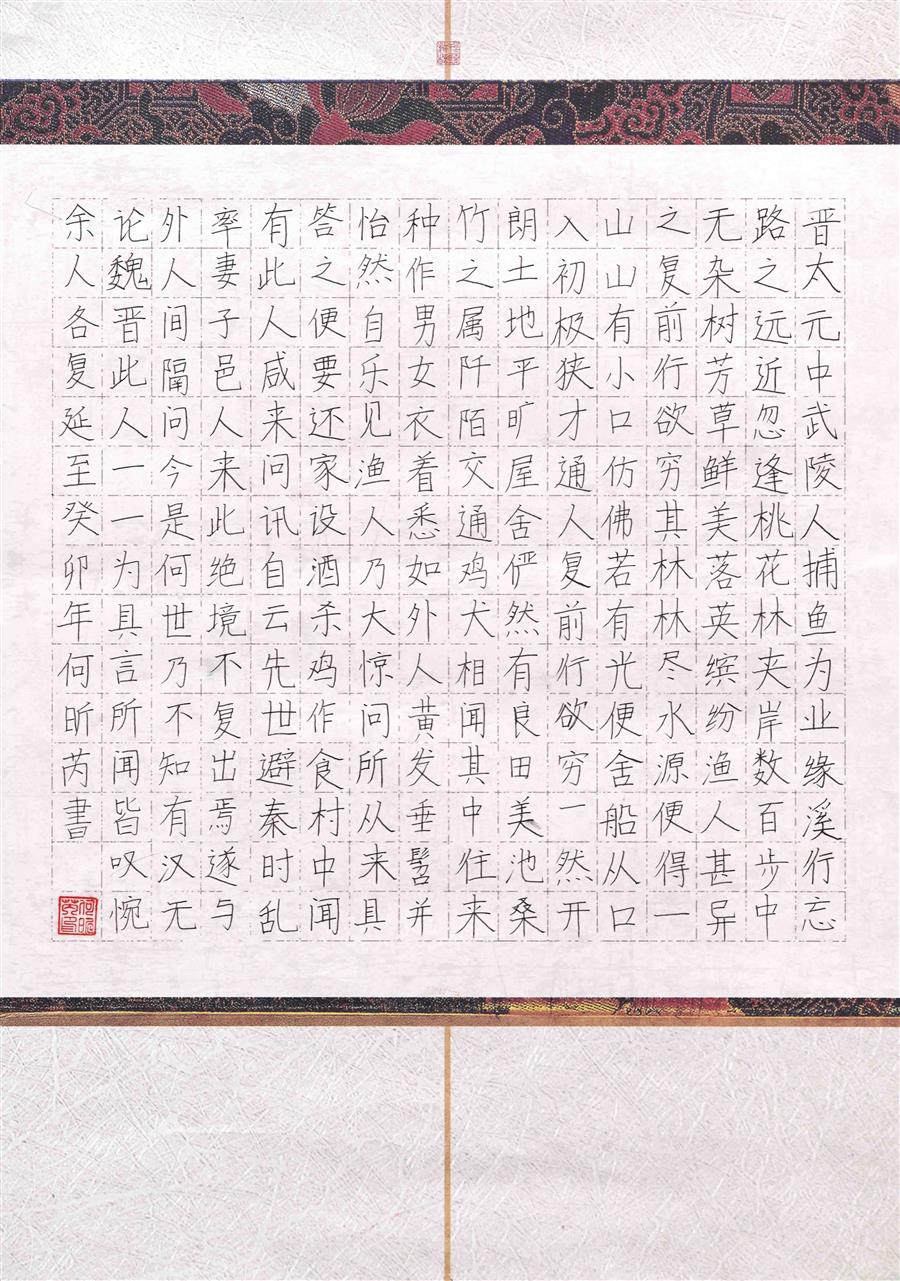 晋太元中武陵人捕鱼为业缘溪行忘
路之远近忽逢桃花林夹岸数百步中
无杂树芳草鲜美落英缤纷渔人甚异
之复前行欲穷其林林尽水源便得一
山山有小口仿佛若有光便舍船从口
入初极狭才通人复前行欲穷一然开
朗土地平旷屋舍俨然有良田美池桑
竹之属阡陌交通鸡犬相闻其中住来
种作男女衣着悉如外人黄发垂髫并
怡然自乐见渔人乃大惊问所从来具
答之便要还家设酒杀鸡作食村中闻
有此人咸来问讯自云先世避秦时乱
率妻子邑人来此绝境不复出焉遂与
外人间隔问今是何世乃不知有汉无
论魏晋此人一一为具言所闻皆叹惋
余人各复延至癸卯年何昕芮書